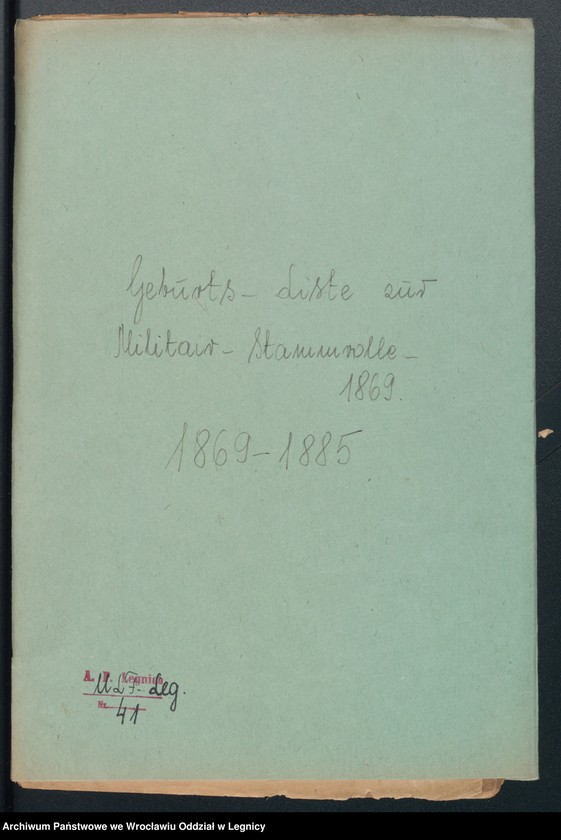 Geburts- Liste zur
Militair- Stammrolle-
1869.
1869-1885
A. P. Legnica
Leg.
Nr. 41
Archiwum Państwowe we Wrocławiu Oddział w Legnicy